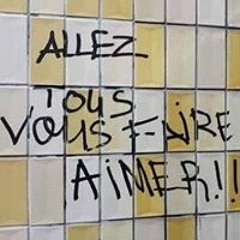 ALLEZ
TOUS
VOUS FAIRE
AIMER!!